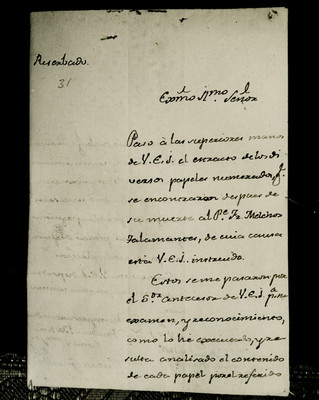 Reserbado.
31
Exmo. Ilmo. Señor
Paso à las superiores manos
de V.E.I. el extracto de los di
versos papeles numerados, q.e
se encontraron despues de
su muerte al P.e Fr. Melchor
Talamantes, de cuia causa
está V.E.I. instruido.
Estos se me pasaron por
el S.or antecesor de V.E.I. p.a su
examen, y reconocimiento,
como lo hé executado, y re
sulta analisado el contenido
de cada papel por el referido